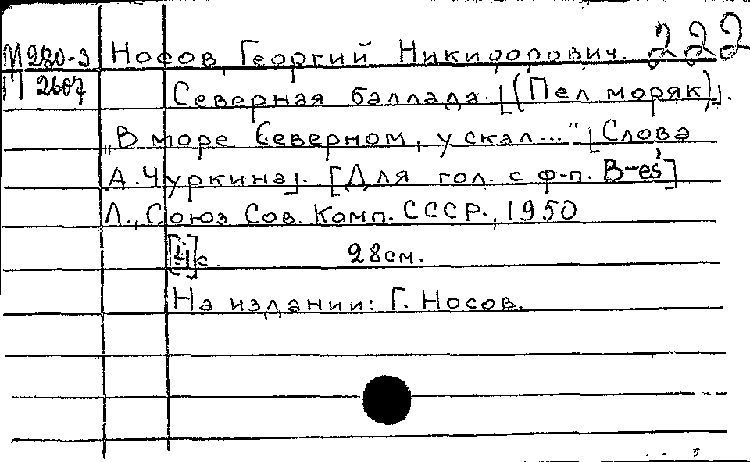 М 280-3 Носов, Георгий Никифорович. 222
П 2607 Северная баллада. [(Пел моряк)].
„В море Северном, у скал..." [Слова
А. Чуркина]. [Для гол. с ф-п. B-es']
Л., Союз Сов. Комп. СССР., 1950
[4]с. 28см.
На издании: Г. Носов.